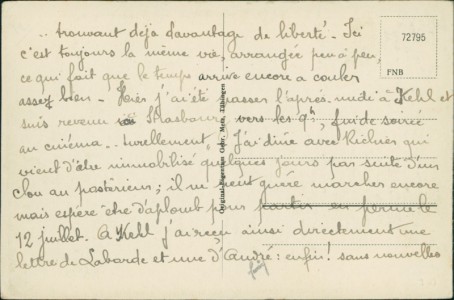 .. trouvant déjà davantage de liberté. Ici
c'est toujours la même vie, arrangée peu à peu,
ce qui fait que le temps arrive encore à couler
assez bien - Hier j'ai été passer l'après-midi à Kehl et
suis revenu à Strasbourg vers les 9h, fin de soirée
au cinéma. J'ai diné avec Richier qui
vient d'être immobilisé quelques jours par suite d'un
clou au postérieur; il ne peut guère marcher encore
mais espère être d'aplomb pour partir en perme le
12 juillet. A Kehl j'ai reçu ainsi directement une
lettre de Laborde et une d'André: enfin! sans nouvelles
72795
FNB
Original-Eigentum Gebr. Metz, Tübingen